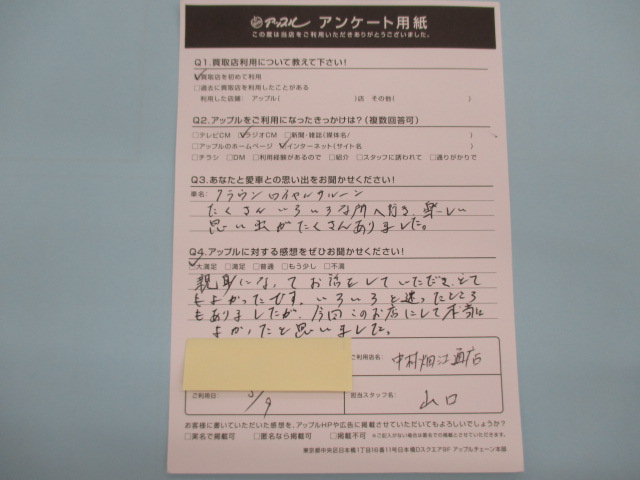 アップル アンケート用紙
この度は当店をご利用いただきありがとうございました。
Q1.買取店利用について教えて下さい!
□買取店を初めて利用
□過去に買取店を利用したことがある
利用した店舗: アップル( )店 その他( )
Q2.アップルをご利用になったきっかけは?(複数回答可)
□テレビCM □ラジオCM □新聞・雑誌(媒体名/ )
□アップルのホームページ □インターネット(サイト名 )
□チラシ □DM □利用経験があるので □紹介 □スタッフに誘われて □通りがかりで
Q3.あなたと愛車との思い出をお聞かせください!
車名: クラウンロイヤルサルーン
たくさんいろいろな所へ行き、楽しい
思い出がたくさんありました。
Q4.アップルに対する感想をぜひお聞かせください!
□大満足 □満足 □普通 □もう少し □不満
親身になってお話をしていただき、とて
もよかったです。いろいろと迷ったところ
もありましたが、今回このお店にして本当に
よかったと思いました。
ご利用店名: 中村畑江通店
ご利用日: 3/9
担当スタッフ名: 山口
お客様に書いていただいた感想を、アップルHPや広告に掲載させていただいてもよろしいでしょうか?
□実名で掲載可 □匿名なら掲載可 □掲載不可 ※ご記入がない場合は匿名での掲載とさせていただきます。
東京都中央区日本橋1丁目16番11号日本橋Dスクエア9F アップルチェーン本部